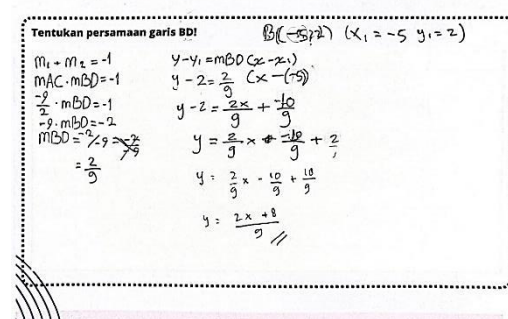 Tentukan persamaan garis BD!
B(-5,2) (x₁ = -5 y₁ = 2)
m₁ + m₂ = -1
mAC · mBD = -1
-9/2 · mBD = -1
-9 · mBD = -2
mBD = -2/-9 =
= 2/9
y - y₁ = mBD (x - x₁)
y - 2 = 2/9 (x - (-5))
y - 2 = 2x/9 + -10/9
y = 2/9 x + -10/9 + 2/1
y = 2/9 x - 10/9 + 18/9
y = 2x + 8 / 9 //